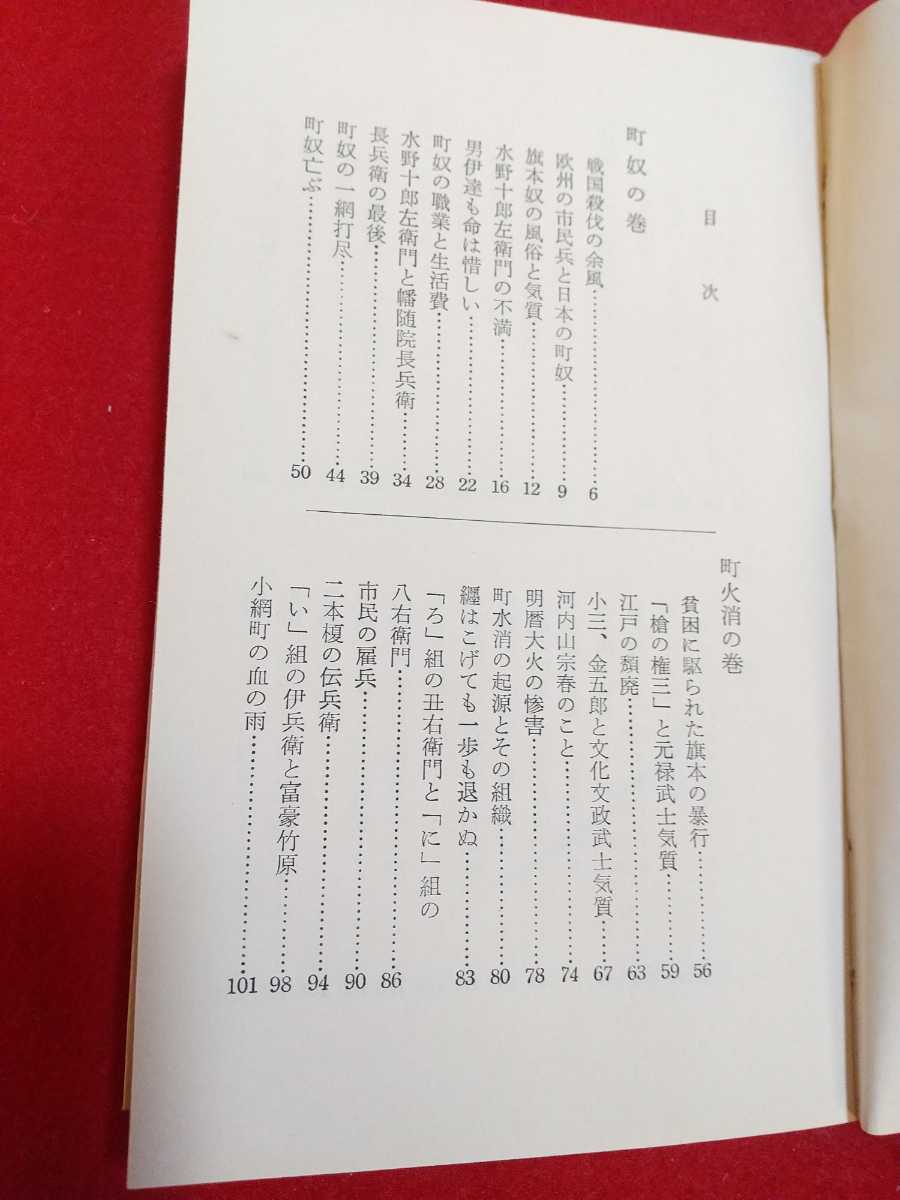 目次
町奴の巻
戦国殺伐の余風……………………6
欧州の市民兵と日本の町奴…………9
旗本奴の風俗と気質…………………12
水野十郎左衛門の不満………………16
男伊達も命は惜しい…………………22
町奴の職業と生活費…………………28
水野十郎左衛門と幡随院長兵衛……34
長兵衛の最後…………………………39
町奴の一網打尽………………………44
町奴亡ぶ………………………………50
町火消の巻
貧困に駆られた旗本の暴行…………56
「槍の権三」と元禄武士気質………59
江戸の頽廃……………………………63
小三、金五郎と文化文政武士気質…67
河内山宗春のこと……………………74
明暦大火の惨害………………………78
町水消の起源とその組織……………80
纒はこげても一歩も退かぬ…………83
「ろ」組の丑右衛門と「に」組の
八右衛門………………………………86
市民の雇兵……………………………90
二本榎の伝兵衛………………………94
「い」組の伊兵衛と富豪竹原………98
小網町の血の雨………………………101